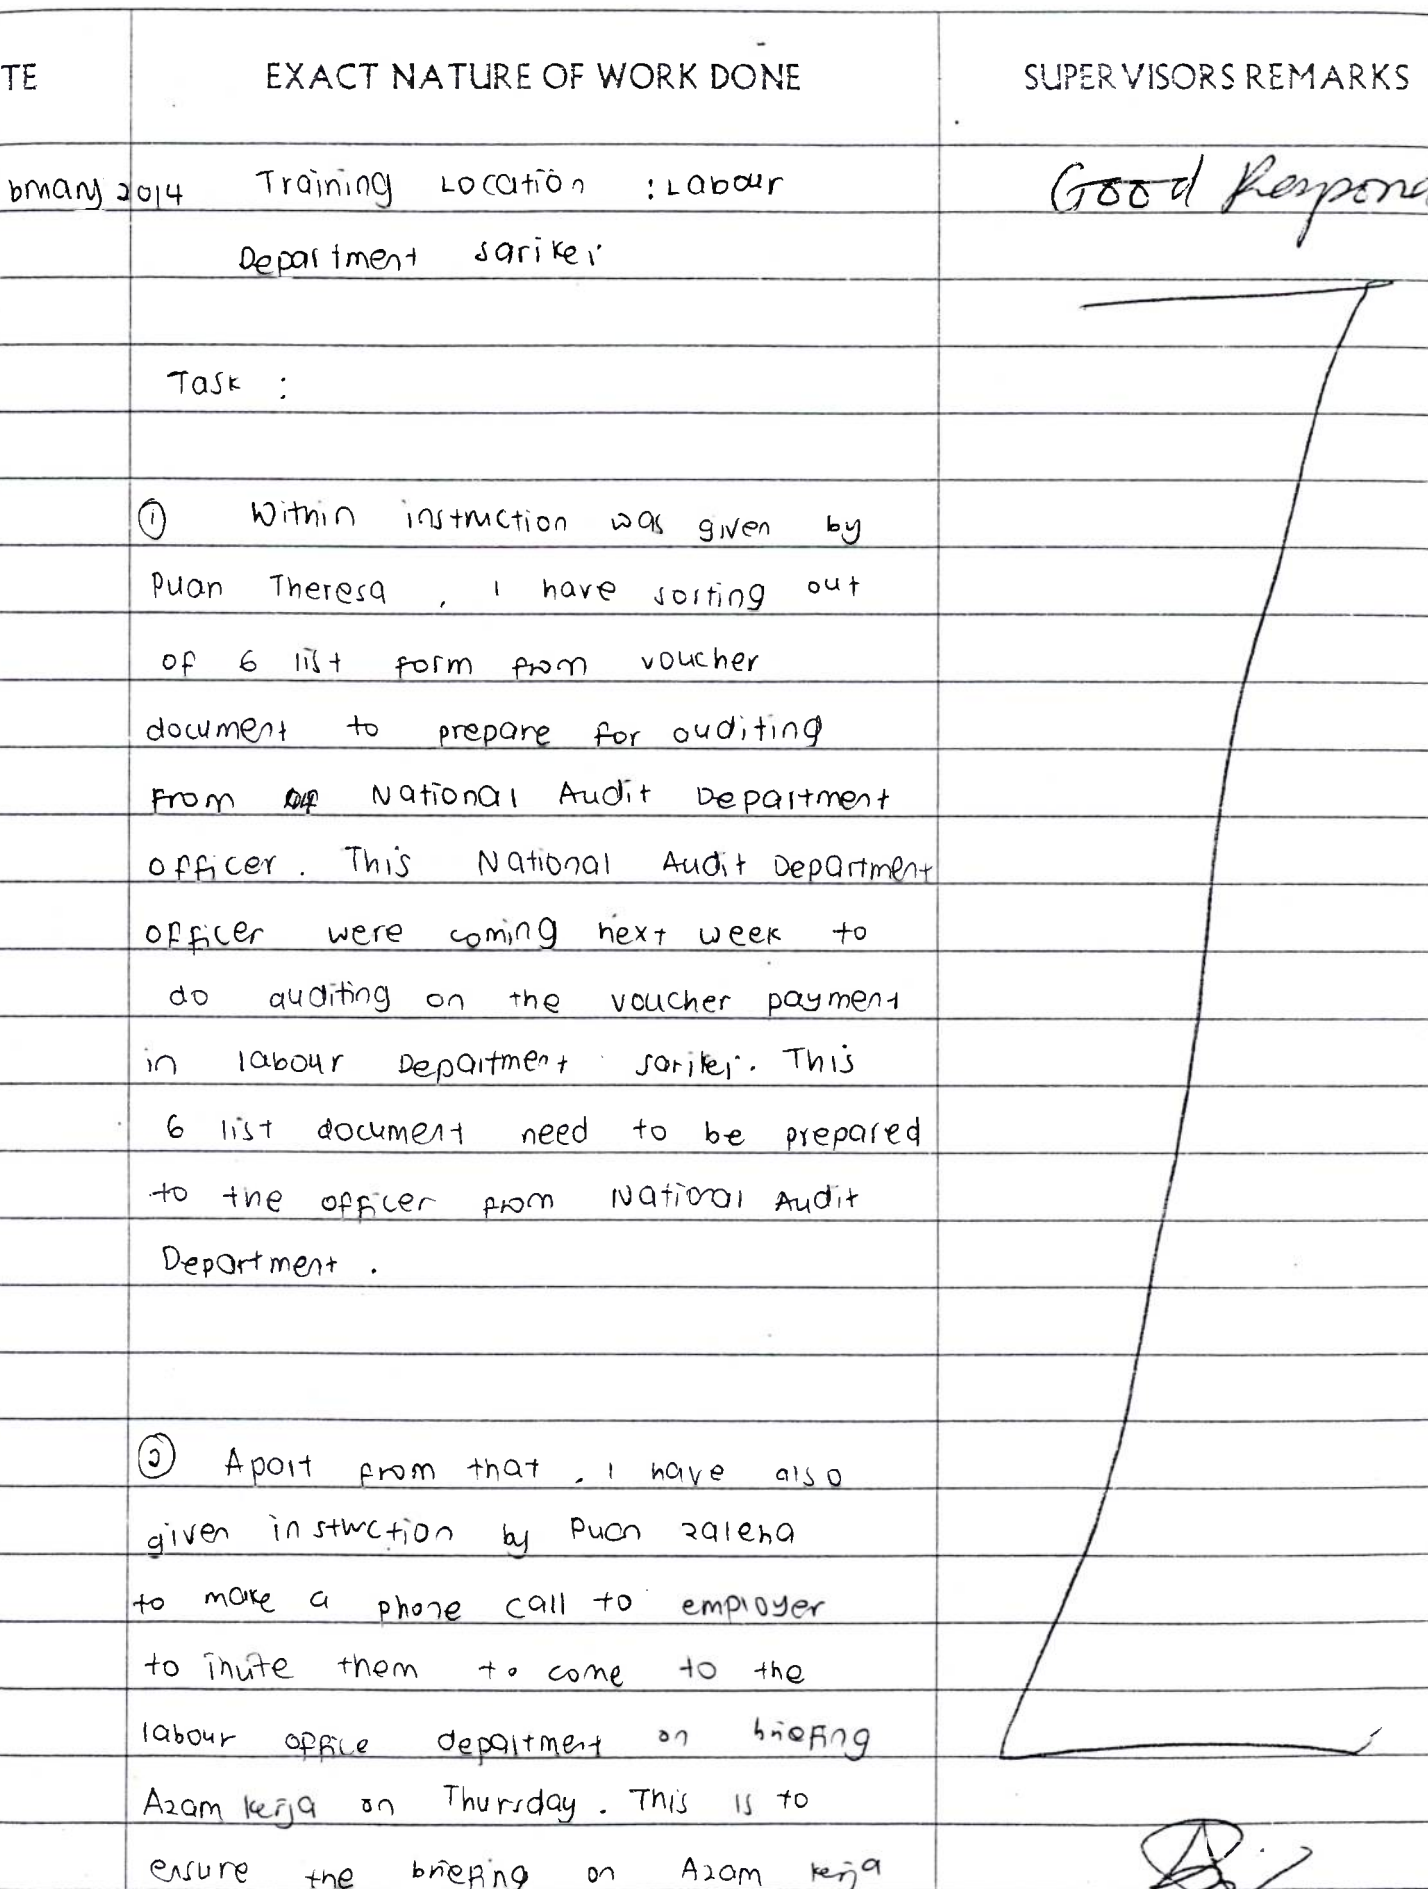 TE EXACT NATURE OF WORK DONE SUPERVISORS REMARKS
bruary 2014 Training Location : Labour Good Respond
Department Sarikei
Task :
① Within instruction was given by
Puan Theresa , I have sorting out
of 6 list form from voucher
document to prepare for auditing
from National Audit Department
officer . This National Audit Department
officer were coming next week to
do auditing on the voucher payment
in labour Department Sarikei. This
6 list document need to be prepared
to the officer from National Audit
Department .
② Apart from that , I have also
given instruction by Puan Zaleha
to make a phone call to employer
to invite them to come to the
labour office department on briefing
Azam kerja on Thursday . This is to
ensure the briefing on Azam kerja